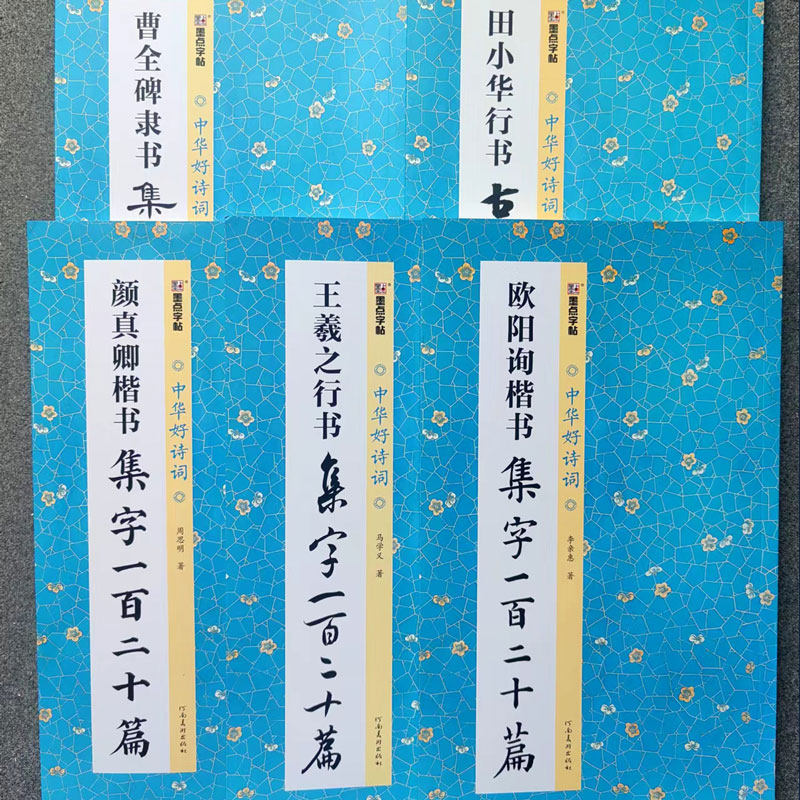 曹全碑隶书集
墨点字帖
中华好诗词
田小华行书古
墨点字帖
中华好诗词
颜真卿楷书集字一百二十篇
墨点字帖
中华好诗词
周思明 著
河南美术出版社
王羲之行书集字一百二十篇
墨点字帖
中华好诗词
马学义 著
河南美术出版社
欧阳询楷书集字一百二十篇
墨点字帖
中华好诗词
李亲惠 著
河南美术出版社